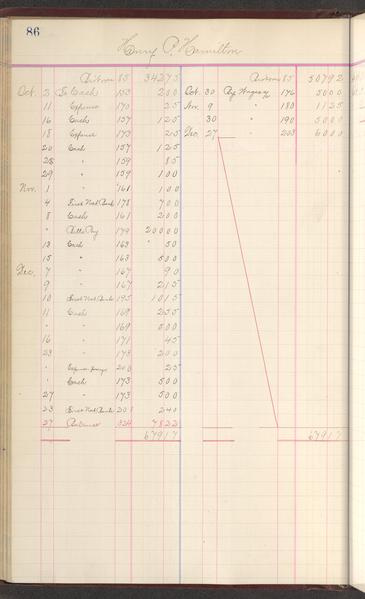 86
Henry P. Hamilton
85 34275 85 50792
Oct. 2 To Cash 153 200 Oct. 30 By Wages 176 5000
11 Expense 170 25 Nov. 9 " 180 1125
16 Cash 157 125 30 " 190 5000
18 Expense 173 215 Dec. 27 " 203 6000
20 Cash 157 125
28 " 159 85
29 " 159 100
Nov. 1 " 161 100
4 First Nat Bank 178 700
8 Cash 161 200
" Bills Pay 179 20000
13 Cash 163 50
15 " 163 500
Dec. 7 " 167 90
9 " 167 215
10 First Nat Bank 195 1015
11 Cash 169 255
" " 169 500
16 " 171 45
23 " 173 200
" Expense 200 25
" Cash 173 500
27 " 173 500
23 First Nat Bank 201 240
27 Balance 324 7822
67917 67917